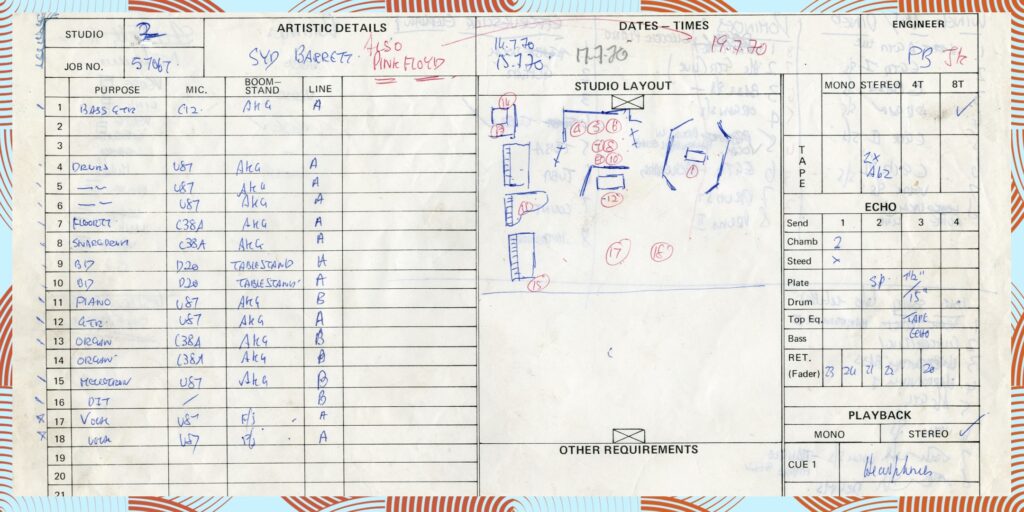 STUDIO 2
JOB NO. 57067
ARTISTIC DETAILS
SYD BARRETT.
ALSO
PINK FLOYD
DATES – TIMES
14.7.70
15.7.70
17.7.70
19.7.70
ENGINEER
PB JK
PURPOSE MIC. BOOM—STAND LINE
1 BASS GTR C12. AKG A
2
3
4 DRUMS U87 AKG A
5 —〃— U87 AKG A
6 —〃— U87 AKG A
7 FLOORTT C38A AKG A
8 SNAREDRUM C38A AKG A
9 BD D20 TABLESTAND A
10 BD D20 TABLESTAND A
11 PIANO U87 AKG B
12 GTR. U87 AKG A
13 ORGAN C38A AKG B
14 ORGAN C38A AKG B
15 MELLOTRON U87 AKG B
16 DIT / B
17 VOCAL U87 F/S A
18 VOCAL U87 F/S A
19
20
21
STUDIO LAYOUT
14
13
4 5 6
7 8
9 10
1
11
12
17
15
OTHER REQUIREMENTS
MONO STEREO 4T 8T
TAPE
2X
A62
ECHO
Send 1 2 3 4
Chamb 2
Steed x
Plate SP. 7½"
Drum 15"
Top Eq. TAPE
Bass ECHO
RET.
(Fader) 23 24 21 22 20
PLAYBACK
MONO STEREO
CUE 1 Headphones